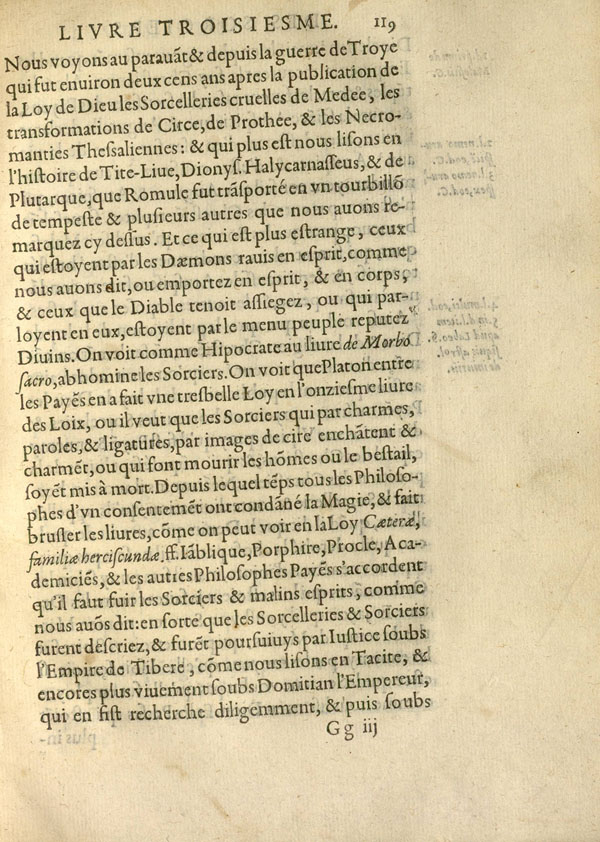 LIVRE TROISIESME. 119
Nous voyons au parauãt & depuis la guerre de Troye
qui fut enuiron deux cens ans apres la publication de
la Loy de Dieu les Sorcelleries cruelles de Medee, les
transformations de Circe, de Prothée, & les Necro-
manties Thessaliennes: & qui plus est nous lisons en
l'histoire de Tite-Liue, Dionys. Halycarnasseus, & de
Plutarque, que Romule fut trãsporté en vn tourbillõ
de tempeste & plusieurs autres que nous auons re-
marquez cy dessus. Et ce qui est plus estrange, ceux
qui estoyent par les Dæmons rauis en esprit, comme
nous auons dit, ou emportez en esprit, & en corps,
& ceux que le Diable tenoit assiegez, ou qui par-
loyent en eux, estoyent par le menu peuple reputez
Diuins. On voit comme Hipocrate au liure de Morbo
sacro, abhomine les Sorciers. On voit que Platon entre
les Payẽs en a fait vne tresbelle Loy en l'onziesme liure
des Loix, ou il veut que les Sorciers qui par charmes,
paroles, & ligatures, par images de cire enchãtent &
charmẽt, ou qui font mourir les hõmes ou le bestail,
soyẽt mis à mort. Depuis lequel tẽps tous les Philoso-
phes d'vn consentemẽt ont condãné la Magie, & fait
brusler les liures, cõme on peut voir en la Loy Cæteræ,
familiæ herciscundæ, ff. Iãblique, Porphire, Procle, Aca-
demiciẽs, & les autres Philosophes Payẽs s'accordent
qu'il faut fuir les Sorciers & malins esprits, comme
nous auõs dit: en sorte que les Sorcelleries & Sorciers
furent descriez, & furẽt poursuiuys par Iustice soubs
l'Empire de Tibere, cõme nous lisons en Tacite, &
encores plus viuement soubs Domitian l'Empereur,
qui en fist recherche diligemment, & puis soubs
Gg iij